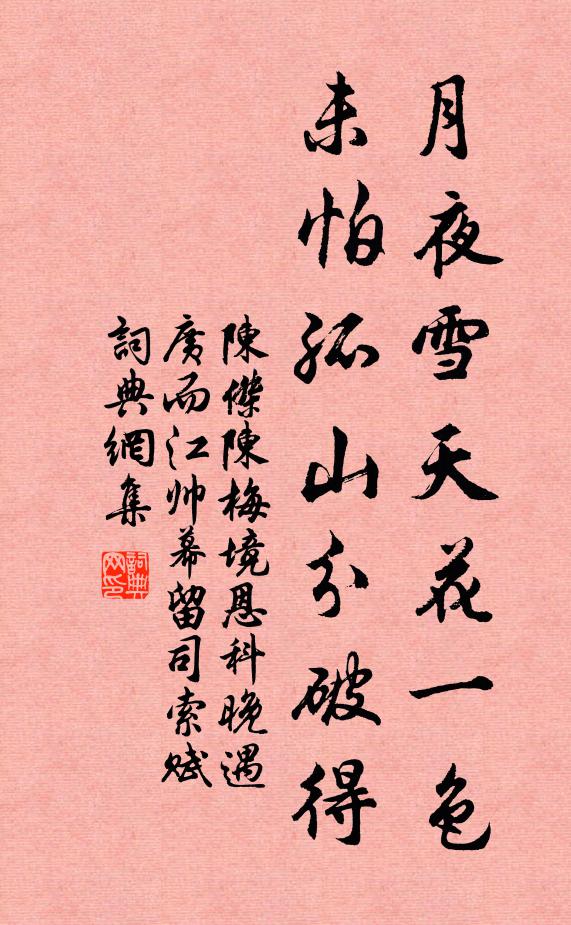 月夜雪天花一色
未怕孤山分破得
陳傑陳梅境恩科晚遇
廣而江帅幕留司索赋
詞典網集
詞典
网印